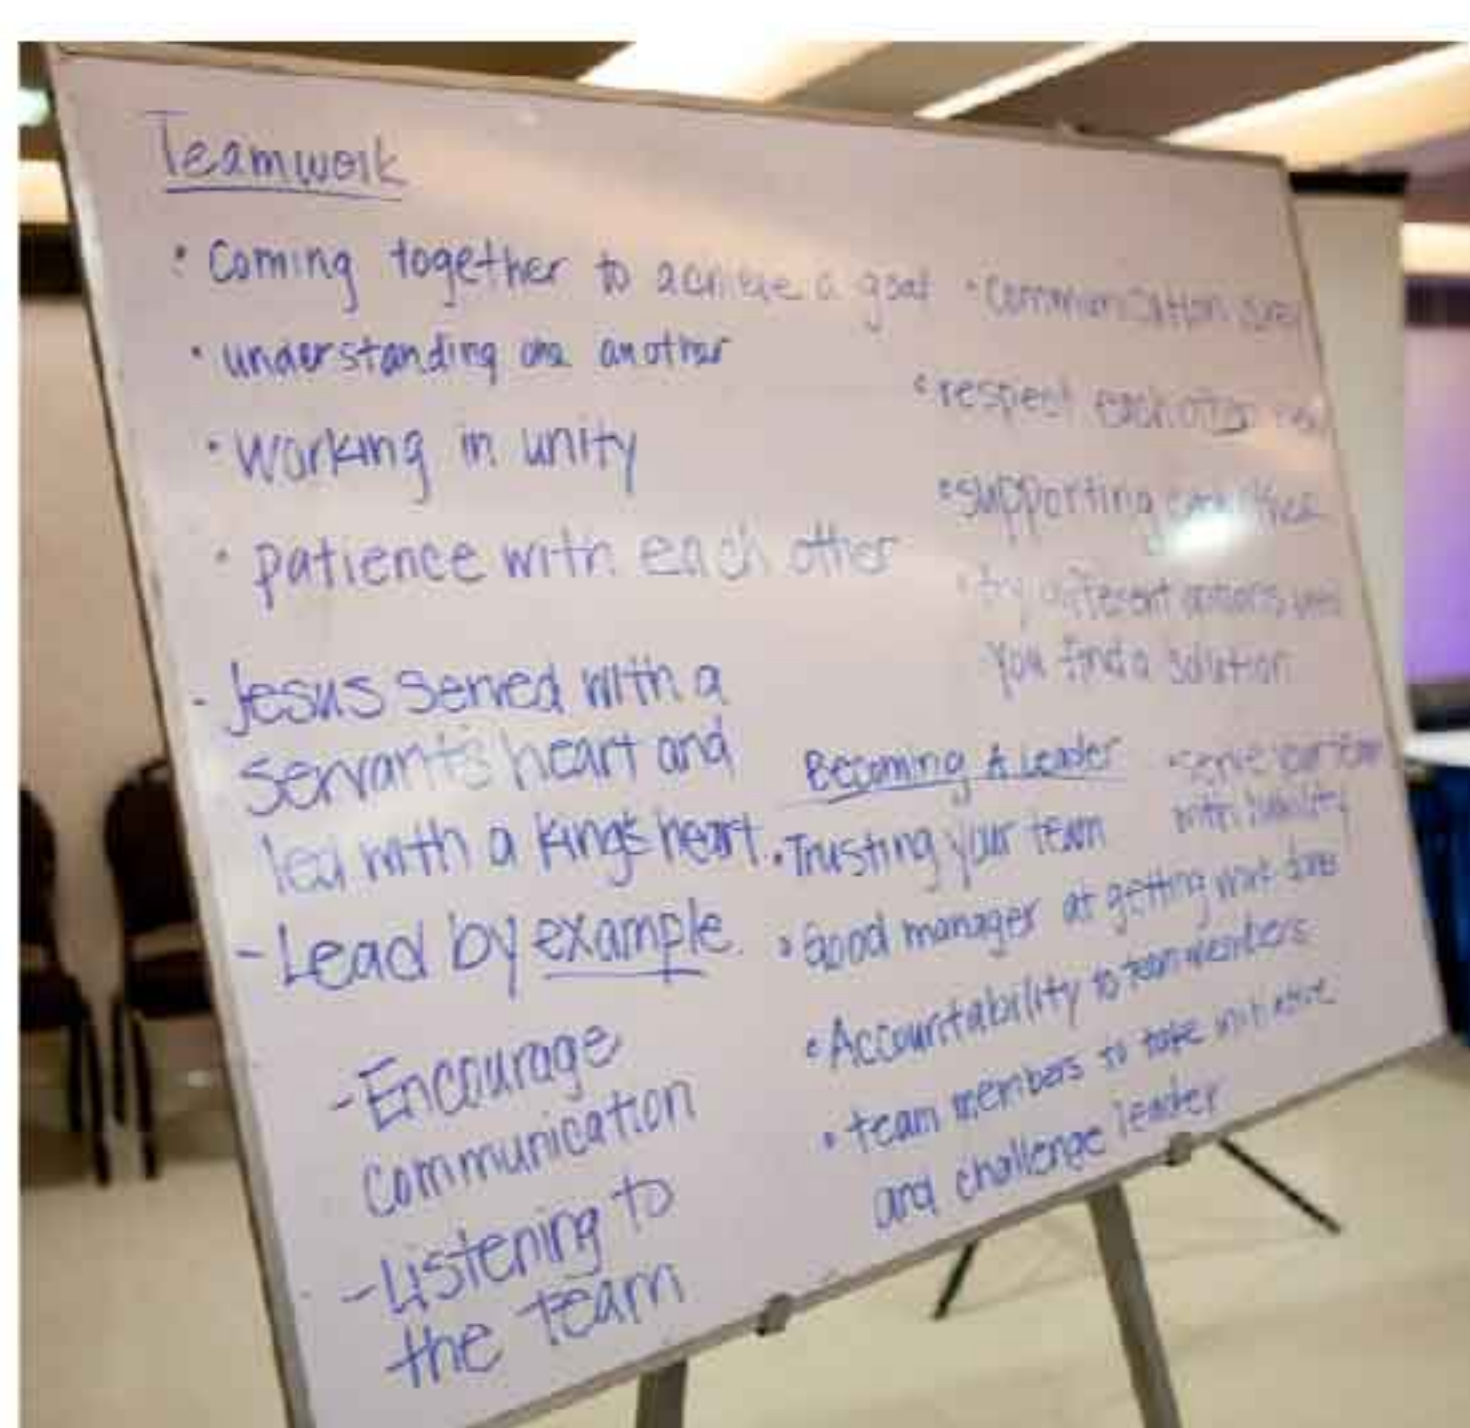 Teamwork
• Coming together to achieve a goal
• understanding one another
• Working in unity
• patience with each other
• communication
• respect each other
• supporting
• try different options until
you find a solution
- Jesus served with a
servant's heart and
led with a king's heart.
- Lead by example
- Encourage
communication
- Listening to
the team
Becoming A Leader
• Trusting your team
• Good manager at getting work done
• Accountability to team members
• team members to take initiative
and challenge leader
• serve your team
with